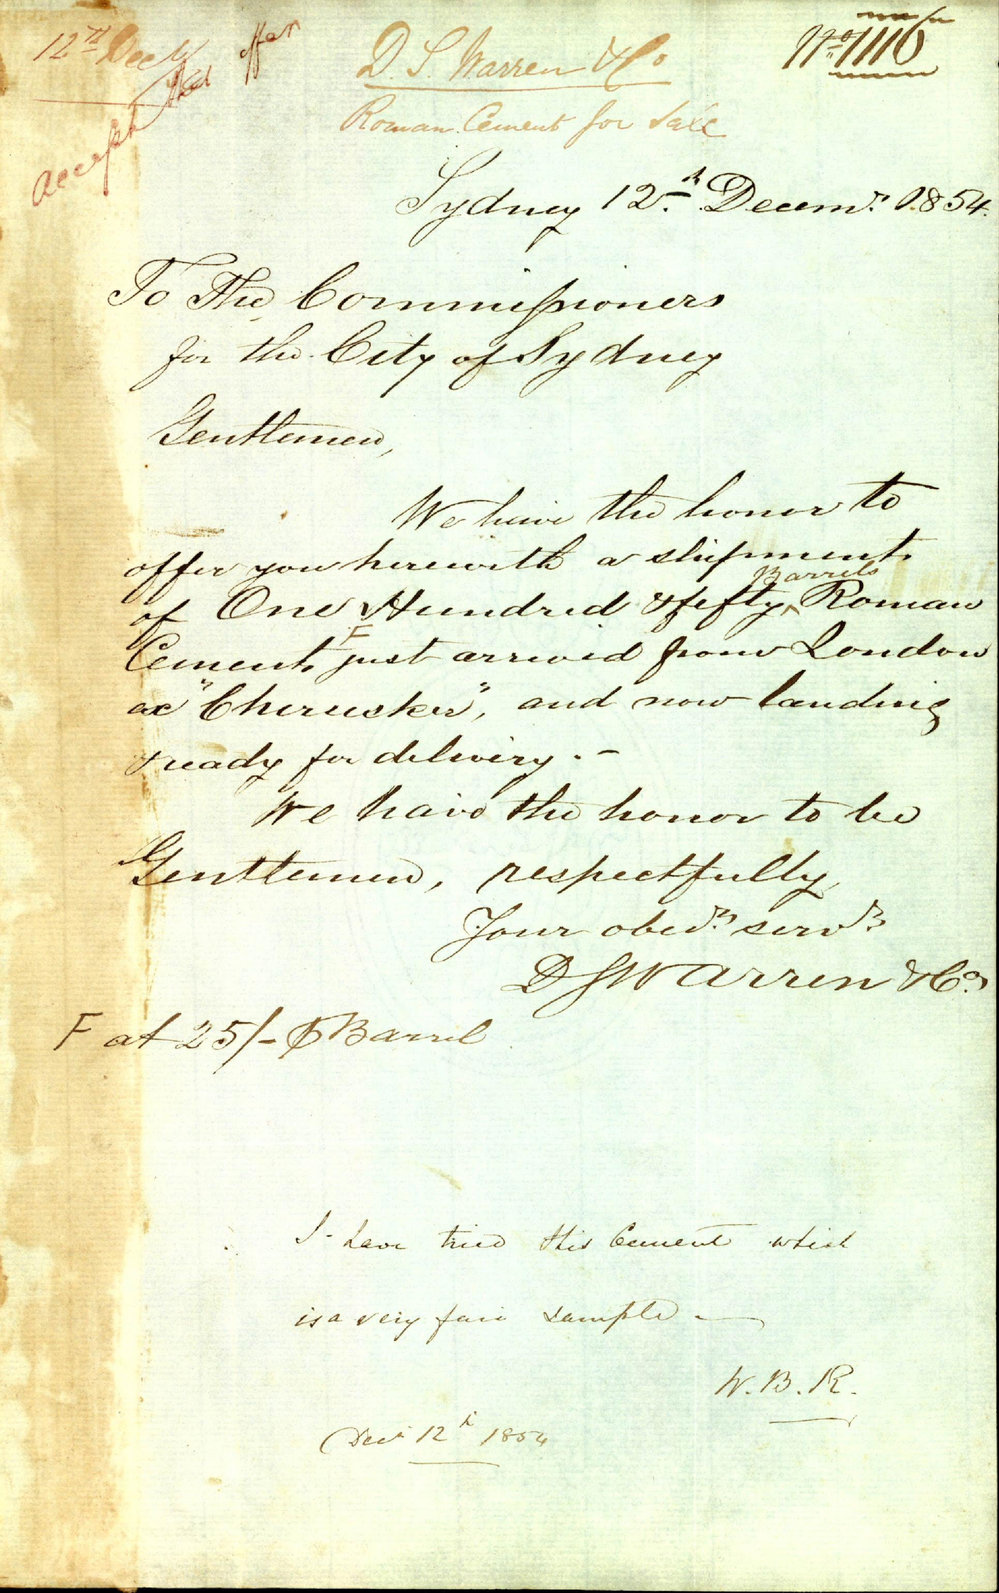 12th Decr
Accept the offer
D. S. Warren & Co
Roman Cement for Sale
No 1116
Sydney 12.th Decemr. 1854.
To The Commissioners
for the City of Sydney
Gentlemen,
We have the honor to
offer you herewith a shipment
of One Hundred & fifty ^ Barrels Roman
Cement, F just arrived from London
ex "Cherusker", and now landing
& ready for delivery. -
We have the honor to be
Gentlemen, respectfully,
Your obedt. servts.
D S Warren & Co.
F at 25/- ⅌ Barrel
I have tried this Cement which
is a very fair sample -
W. B. R.
Decr 12th 1854